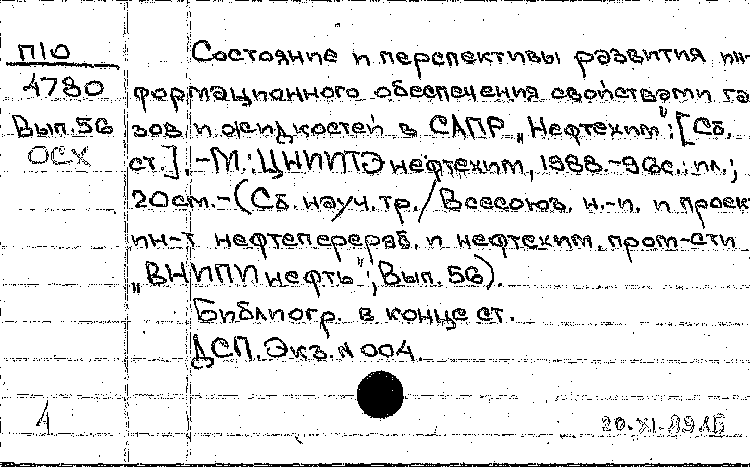 П10
4780
Вып.56
ОСХ
Состояние и перспективы развития ин-
формационного обеспечения свойствами га
зов и жидкостей в САПР „Нефтехим”: [Сб.
ст.]. -М.: ЦНИИТЭнефтехим, 1988.-96с.: ил.;
20см.-(Сб. науч. тр./ Всесоюз. н.-и. и проек
ин-т нефтеперераб. и нефтехим. пром-сти
„ВНИПИнефть”; Вып. 56).
Библиогр. в конце ст.
ДСП. Экз. N 004.
1
20.XI.89